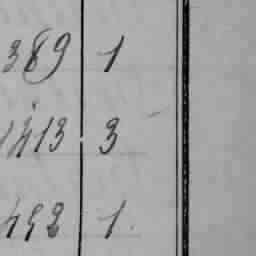 389 1
1413 3
492 1.